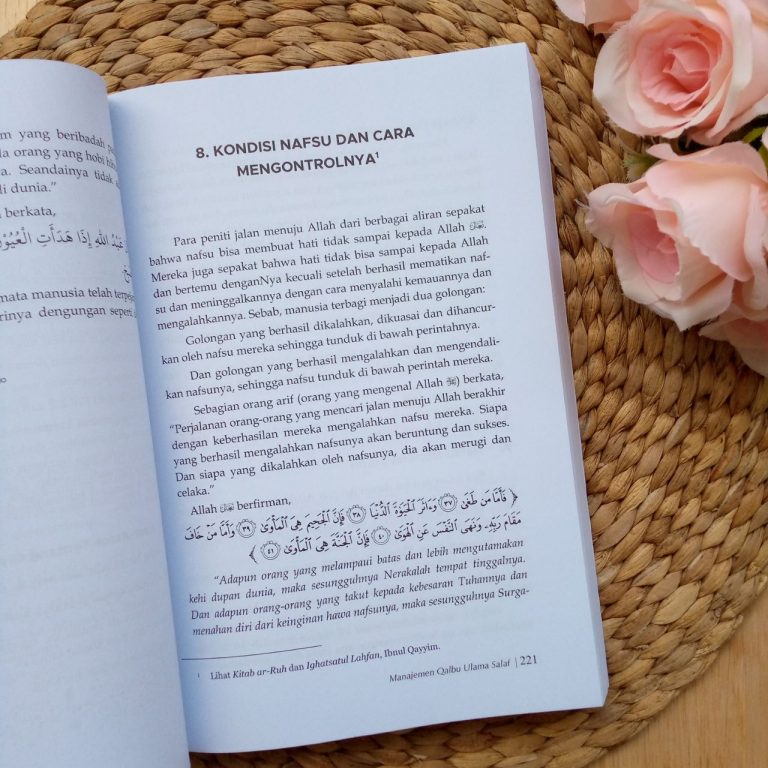 m yang beribadah
a orang yang hobi
ya. Seandainya tidak
di dunia."
berkata,
عَبْدُ اللهِ إِذَا هَدَأَتِ الْعُيُوْنُ
mata manusia telah
rinya dengungan
8. KONDISI NAFSU DAN CARA
MENGONTROLNYA¹
Para peniti jalan menuju Allah dari berbagai aliran sepakat
bahwa nafsu bisa membuat hati tidak sampai kepada Allah ﷻ.
Mereka juga sepakat bahwa hati tidak bisa sampai kepada Allah
dan bertemu denganNya kecuali setelah berhasil mematikan naf-
su dan meninggalkannya dengan cara menyalahi kemauannya dan
mengalahkannya. Sebab, manusia terbagi menjadi dua golongan:
Golongan yang berhasil dikalahkan, dikuasai dan dihancur-
kan oleh nafsu mereka sehingga tunduk di bawah perintahnya.
Dan golongan yang berhasil mengalahkan dan mengendali-
kan nafsunya, sehingga nafsu tunduk di bawah perintah mereka.
Sebagian orang arif (orang yang mengenal Allah ﷻ) berkata,
"Perjalanan orang-orang yang mencari jalan menuju Allah berakhir
dengan keberhasilan mereka mengalahkan nafsu mereka. Siapa
yang berhasil mengalahkan nafsunya akan beruntung dan sukses.
Dan siapa yang dikalahkan oleh nafsunya, dia akan merugi dan
celaka."
Allah ﷻ berfirman,
﴿ فَأَمَّا مَن طَغَىٰ ٣٧ وَءَاثَرَ ٱلْحَيَوٰةَ ٱلدُّنْيَا ٣٨ فَإِنَّ ٱلْجَحِيمَ هِىَ ٱلْمَأْوَىٰ ٣٩ وَأَمَّا مَنْ خَافَ
مَقَامَ رَبِّهِۦ وَنَهَى ٱلنَّفْسَ عَنِ ٱلْهَوَىٰ ٤٠ فَإِنَّ ٱلْجَنَّةَ هِىَ ٱلْمَأْوَىٰ ٤١ ﴾
"Adapun orang yang melampaui batas dan lebih mengutamakan
kehi dupan dunia, maka sesungguhnya Nerakalah tempat tinggalnya.
Dan adapun orang-orang yang takut kepada kebesaran Tuhannya dan
menahan diri dari keinginan hawa nafsunya, maka sesungguhnya Surga-
¹ Lihat Kitab ar-Ruh dan Ighatsatul Lahfan, Ibnul Qayyim.
Manajemen Qalbu Ulama Salaf | 221